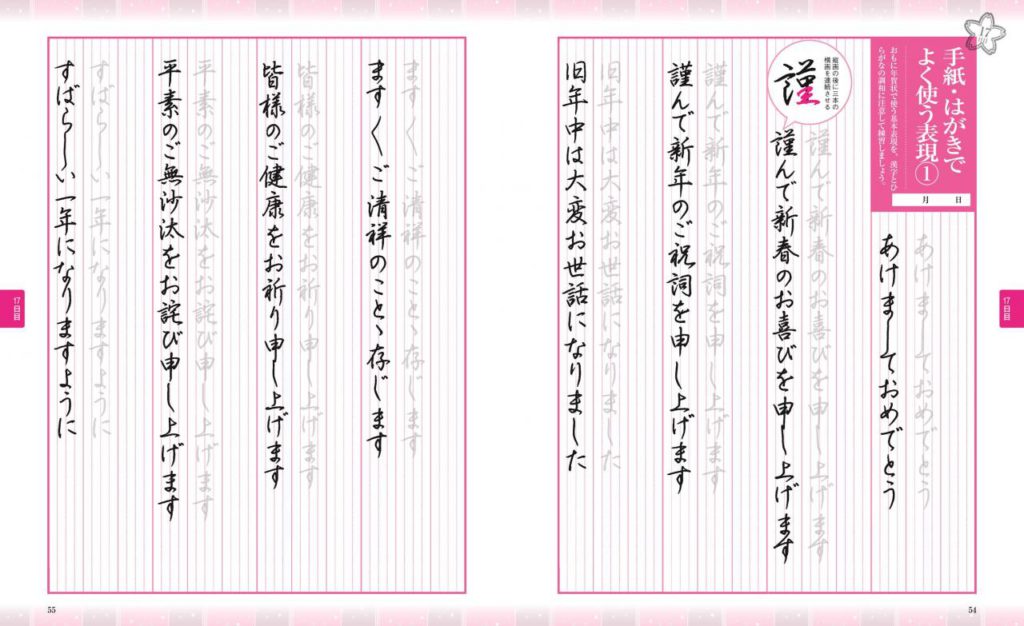 17
手紙・はがきで
よく使う表現①
おもに年賀状で使う基本表現を、漢字とひ
らがなの調和に注意して練習しましょう。
月 日
あけましておめでとう
あけましておめでとう
縦画の後に三本の
横画を連続させる
謹
謹んで新春のお喜びを申し上げます
謹んで新春のお喜びを申し上げます
謹んで新年のご祝詞を申し上げます
謹んで新年のご祝詞を申し上げます
旧年中は大変お世話になりました
旧年中は大変お世話になりました
17日目
54
ます〱ご清祥のことゝ存じます
ます〱ご清祥のことゝ存じます
皆様のご健康をお祈り申し上げます
皆様のご健康をお祈り申し上げます
平素のご無沙汰をお詫び申し上げます
平素のご無沙汰をお詫び申し上げます
すばらしい一年になりますように
すばらしい一年になりますように
17日目
55